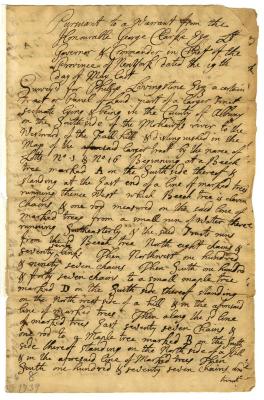 Pursuant to a Warrant from the
Honourable George Clarke Esq. Lt
Governor & Commander in Chief of the
Province of New York dated the 19th
day of May Last
Survey'd for Philip Livingstone Esq a certain
Tract or Parcel of Land part of a larger tract
scituate lying & being in the County of Albany
on the side of the Mohawks river to the
Westward of the hill & distinguished in the
Map of the aforesaid larger tract by the name of
Lotts No 1 & No 16 Beginning at a Beech
tree marked A on the South side thereof &
standing at the East end of a line of marked trees
running thence West which Beech tree is eleven
chains & one rod measured on the East line of
marked trees from a small run of Water there
running Southeasterly & the said Tract runs
from the said Beech Tree North eight chains &
seventy links Then Northwest one hundred
& seventy seven chains Then South one hundred
& forty seven chains to a small maple tree
marked D on the South side thereof standing
on the North west side of a hill & in the aforesaid
line of Marked trees Then along the line
of marked trees East seventy seven chains &
one rod to a Maple tree marked B on the South
side thereof standing on the North side of a hill
& in the aforesaid line of Marked trees Then
South one hundred & seventy seven chains one
hundd
1739